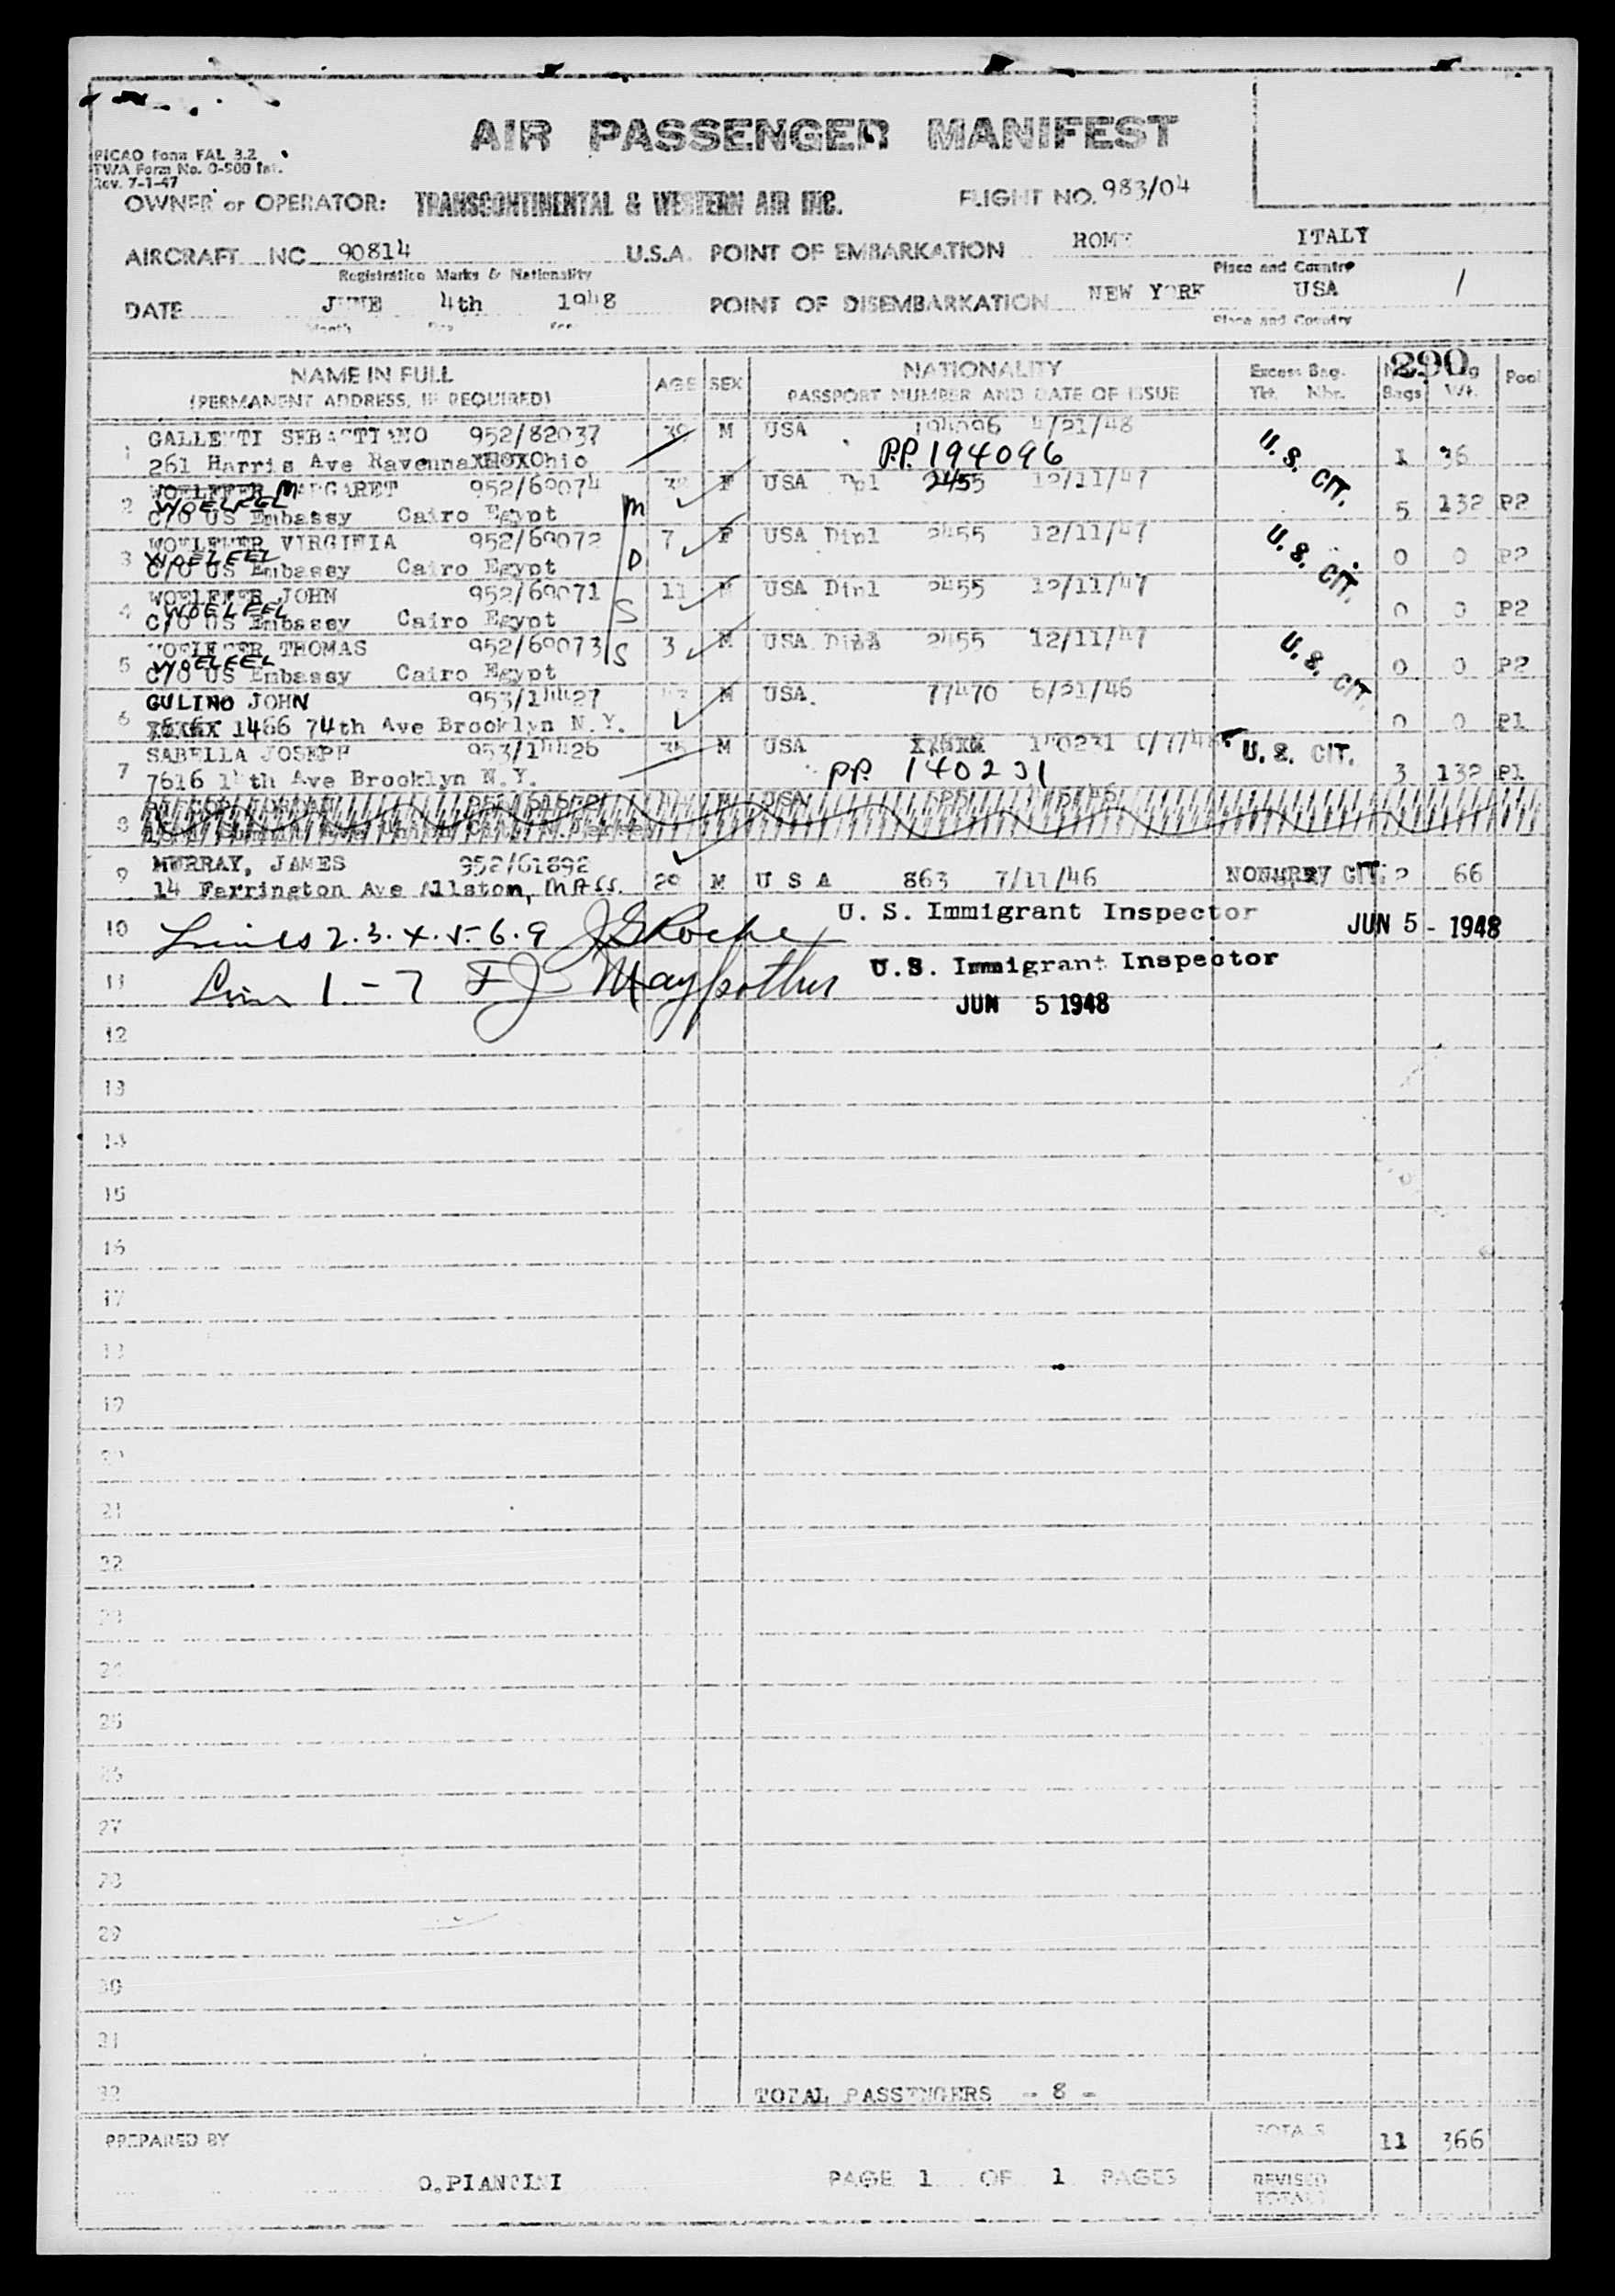 AIR PASSENGER MANIFEST
PICAO Form FAL 3.2
TWA Form No. O-500 Int.
Rev. 7-1-47
OWNER or OPERATOR: TRANSCONTINENTAL & WESTERN AIR INC. FLIGHT NO. 983/04
AIRCRAFT NC 90814 U.S.A. POINT OF EMBARKATION ROME ITALY
Registration Marks & Nationality Place and Country
DATE JUNE 4th 1948 POINT OF DISEMBARKATION NEW YORK USA 1
Month Day Year Place and Country
290
NAME IN FULL AGE SEX NATIONALITY Excess Bag. Bag Pool
(PERMANENT ADDRESS, IF REQUIRED) PASSPORT NUMBER AND DATE OF ISSUE Tkt. Nbr. Bags Wt.
1 GALLETTI SEBASTTIANO 952/82037 39 M USA 194096 4/21/48 U. S. CIT.
261 Harris Ave Ravenna Ohio P.P. 194096 1 36
2 WOELFFER MARGARET 952/69074 F USA Dpl 2455 12/11/47
WOELFEL
C/O US Embassy Cairo Egypt M 5 132 P2
3 VIRGINIA 952/69072 7 F USA Dipl 2455 12/11/47 U. S. CIT.
WOELFEL
C/O US Embassy Cairo Egypt D 0 0 P2
4 WOELFFER JOHN 952/69071 11 M USA Dipl 2455 12/11/47
WOELFEL
C/O US Embassy Cairo Egypt S 0 0 P2
5 THOMAS 952/69073 3 M USA 2455 12/11/47 U. S. CIT.
WOELFEL
C/O US Embassy Cairo Egypt S 0 0 P2
6 GULINO JOHN 953/14427 M USA. 77470 6/21/46
1466 74th Ave Brooklyn N.Y. 0 0 P1
7 SABELLA JOSEPH 953/14426 M USA 140231 U. S. CIT.
7616 th Ave Brooklyn N.Y. P.P. 140231 3 132 P1
8
9 MURRAY, JAMES 952/61892
14 Farrington Ave Allston, MASS. 29 M U S A 863 7/11/46 CIT. 2 66
10 2. 3. 4. 5. 6. 9 U. S. Immigrant Inspector JUN 5 - 1948
11 1 - 7 U.S. Immigrant Inspector
JUN 5 1948
12
13
14
15
16
17
18
19
20
21
22
23
24
25
26
27
28
29
30
31
32 TOTAL PASSENGERS - 8 -
PREPARED BY TOTALS 11 366
O.PIANCINI PAGE 1 OF 1 PAGES REVISED
TOTALS